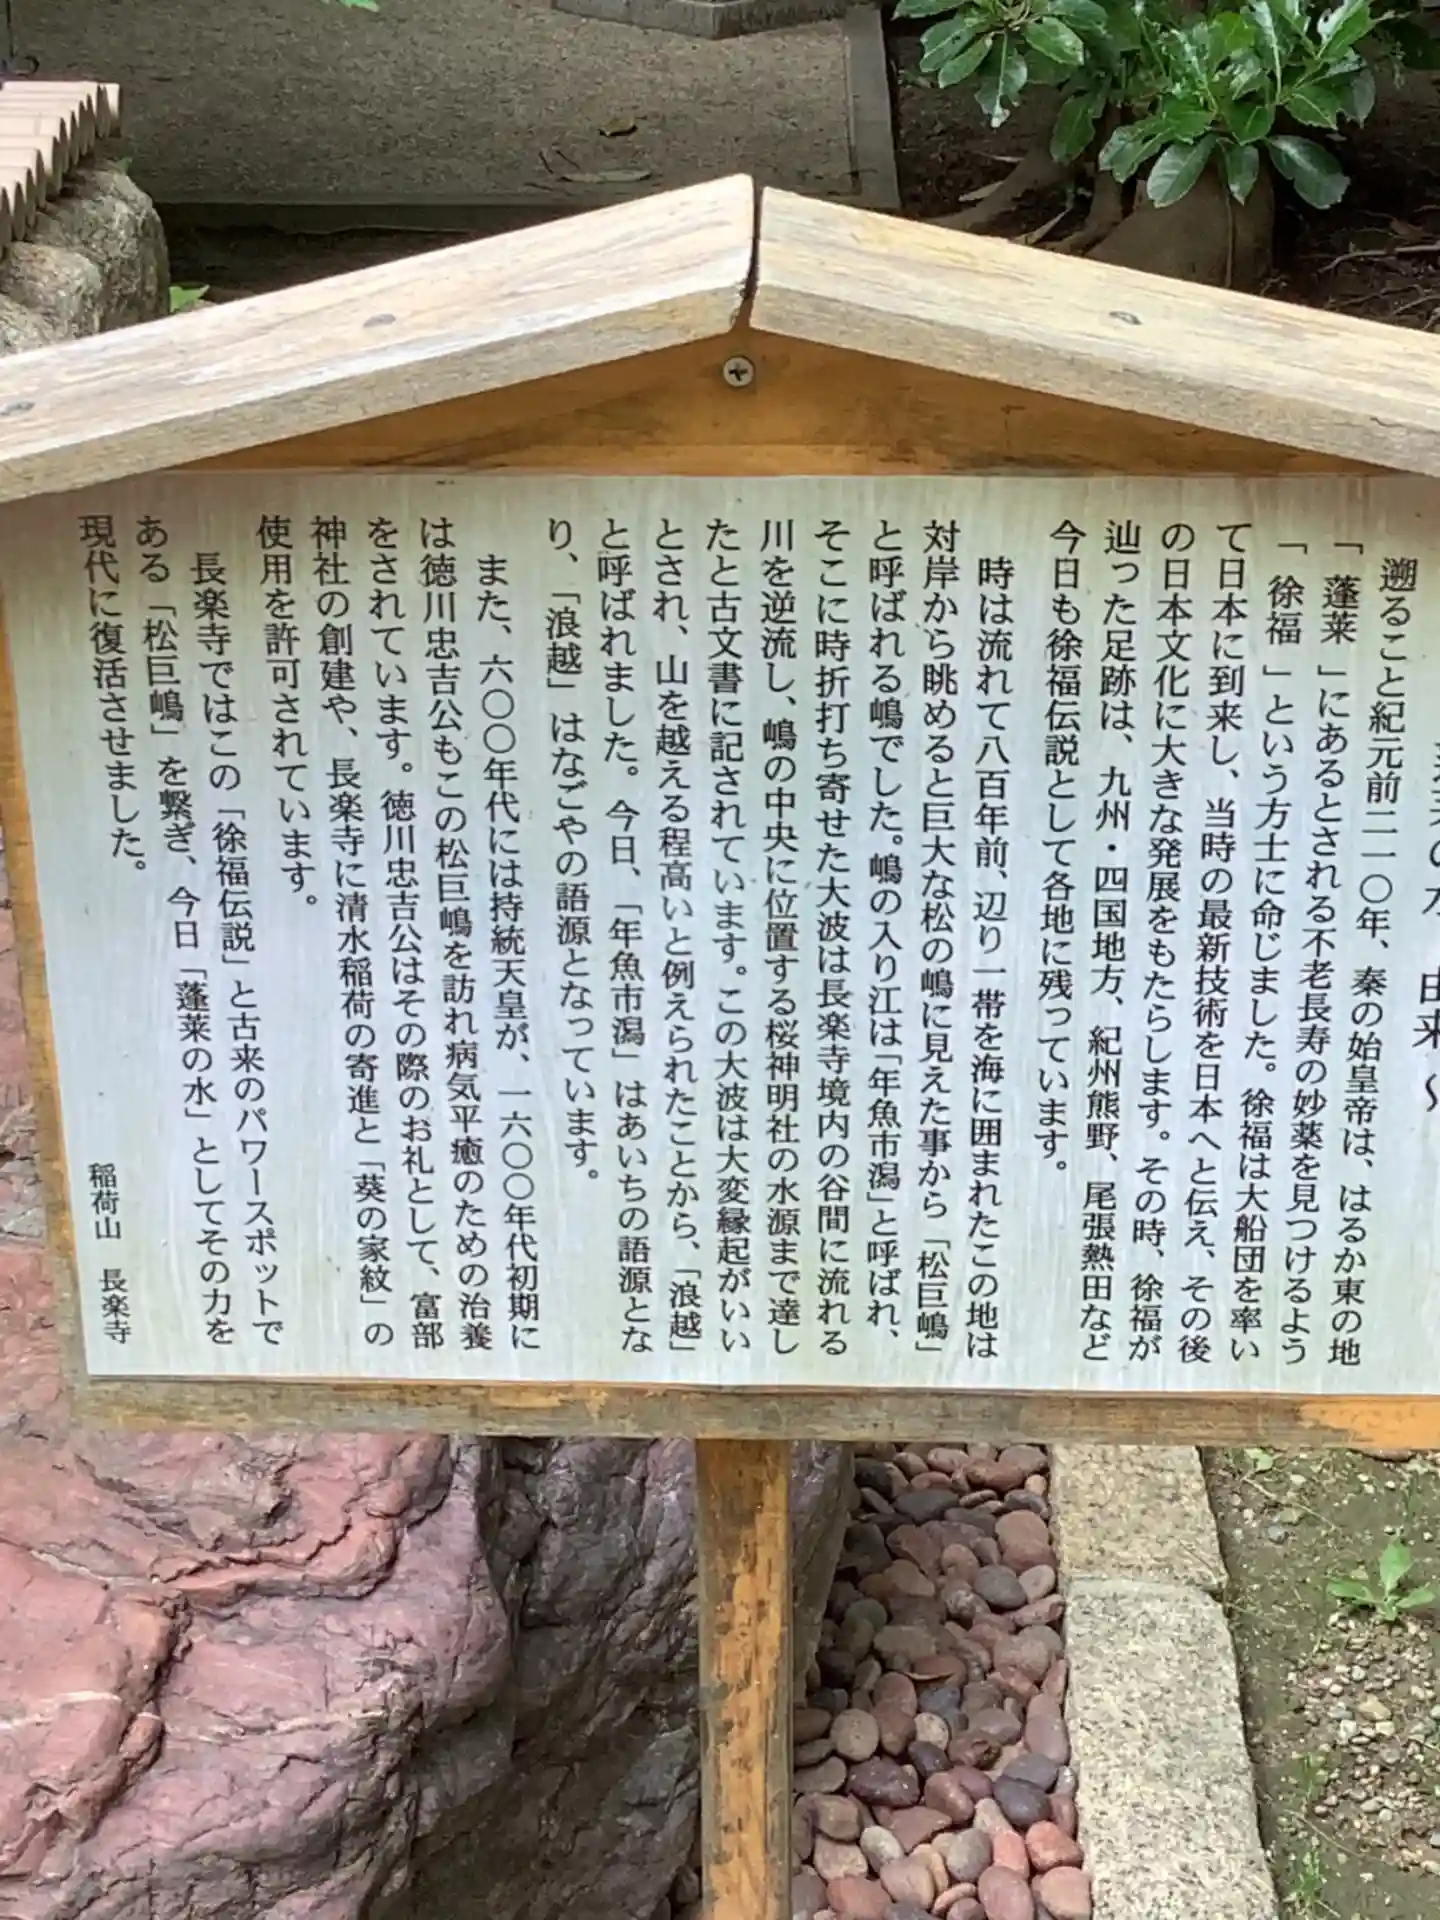 の水 由来～
遡ること紀元前二一〇年、秦の始皇帝は、はるか東の地
「蓬莱 」にあるとされる不老長寿の妙薬を見つけるよう
「徐福 」という方士に命じました。徐福は大船団を率い
て日本に到来し、当時の最新技術を日本へと伝え、その後
の日本文化に大きな発展をもたらします。その時、徐福が
辿った足跡は、九州・四国地方、紀州熊野、尾張熱田など
今日も徐福伝説として各地に残っています。
時は流れて八百年前、辺り一帯を海に囲まれたこの地は
対岸から眺めると巨大な松の嶋に見えた事から「松巨嶋」
と呼ばれる嶋でした。嶋の入り江は「年魚市潟」と呼ばれ、
そこに時折打ち寄せた大波は長楽寺境内の谷間に流れる
川を逆流し、嶋の中央に位置する桜神明社の水源まで達し
たと古文書に記されています。この大波は大変縁起がいい
とされ、山を越える程高いと例えられたことから、「浪越」
と呼ばれました。今日、「年魚市潟」はあいちの語源とな
り、「浪越」はなごやの語源となっています。
また、六〇〇年代には持統天皇が、一六〇〇年代初期に
は徳川忠吉公もこの松巨嶋を訪れ病気平癒のための治養
をされています。徳川忠吉公はその際のお礼として、富部
神社の創建や、長楽寺に清水稲荷の寄進と「葵の家紋」の
使用を許可されています。
長楽寺ではこの「徐福伝説」と古来のパワースポットで
ある「松巨嶋」を繋ぎ、今日「蓬莱の水」としてその力を
現代に復活させました。
稲荷山 長楽寺